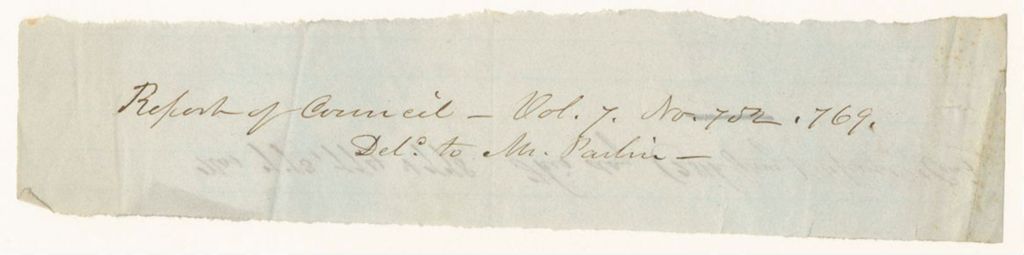 Report of Council – Vol. 7. No. 752 . 769.
Del.d to Mr. Parlin –